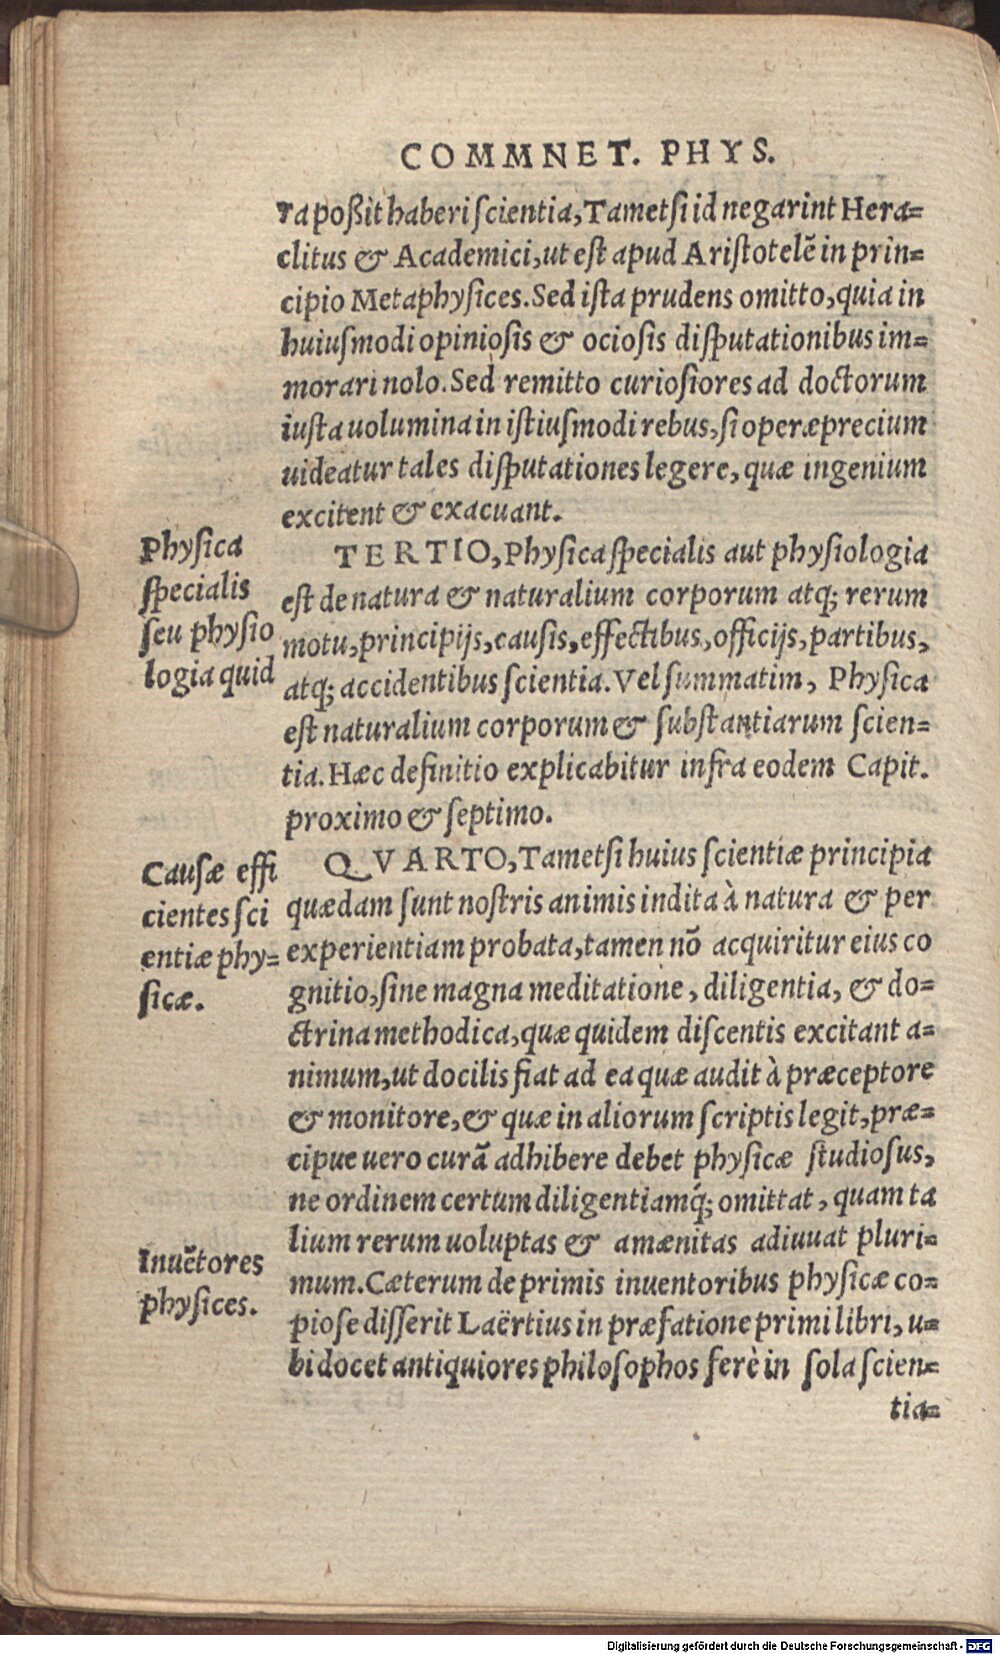 COMMNET. PHYS.
ra poßit haberi scientia, Tametsi id negarint Hera=
clitus & Academici, ut est apud Aristotelē in prin=
cipio Metaphysices. Sed ista prudens omitto, quia in
huiusmodi opiniosis & ociosis disputationibus im=
morari nolo. Sed remitto curiosiores ad doctorum
iusta uolumina in istiusmodi rebus, si operæprecium
uideatur tales disputationes legere, quæ ingenium
excitent & exacuant.
Physica
specialis
seu physio
logia quid
TERTIO, Physica specialis aut physiologia
est de natura & naturalium corporum atq; rerum
motu, principijs, causis, effectibus, officijs, partibus,
atq; accidentibus scientia. Vel summatim, Physica
est naturalium corporum & substantiarum scien=
tia. Hæc definitio explicabitur infra eodem Capit.
proximo & septimo.
Causæ effi
cientes sci
entiæ phy=
sicæ.
QVARTO, Tametsi huius scientiæ principia
quædam sunt nostris animis indita à natura & per
experientiam probata, tamen nō acquiritur eius co
gnitio, sine magna meditatione, diligentia, & do=
ctrina methodica, quæ quidem discentis excitant a=
nimum, ut docilis fiat ad ea quæ audit à præceptore
& monitore, & quæ in aliorum scriptis legit, præ=
cipue uero curā adhibere debet physicæ studiosus,
ne ordinem certum diligentiamq́; omittat, quam ta
lium rerum uoluptas & amœnitas adiuuat pluri=
mum. Cæterum de primis inuentoribus physicæ co=
piose disserit Laërtius in præfatione primi libri, u=
bi docet antiquiores philosophos ferè in sola scien=
tia=
Inuētores
physices.
Digitalisierung gefördert durch die Deutsche Forschungsgemeinschaft - DFG